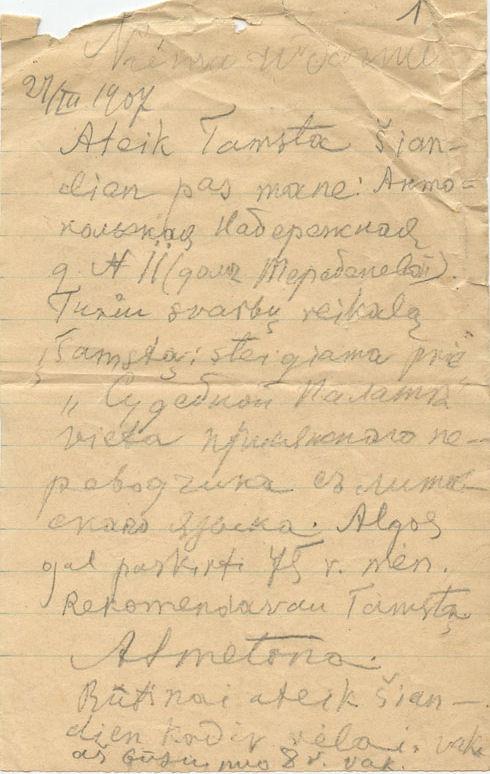 1
27/III 1907
Ateik Tamsta šian-
dien pas mane: Анто-
кольская Набережная
д. № 11 (домъ Теребеневой).
Turiu svarbų reikalą
į Tamstą: steigiama prie
„Судебной Палаты"
vieta присяжного пе-
реводчика съ литов-
скаго языка. Algos
gal paskirti 75 r. mėn.
Rekomendavau Tamstą
ASmetona.
Būtinai ateik šian-
dien kodir vėlai. vak
aš būsiu nuo 8 v. vak.